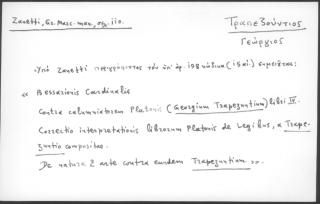 Zanetti, Gr. Marc. man., σελ. 110.
Τραπεζούντιος
Γεώργιος
Ὑπὸ Zanetti περιγράφεται τὸν ὑπ' ἀρ. 198 κώδικα (15 αἰ.) σημειῶται:
« Bessarionis Cardinalis
Contra calumniatorem Platonis (Georgium Trapezuntium) libri IV.
Correctio interpretationis librorum Platonis de Legibus, a Trape-
zuntio compositae.
De natura & arte contra eundem Trapezuntium ».